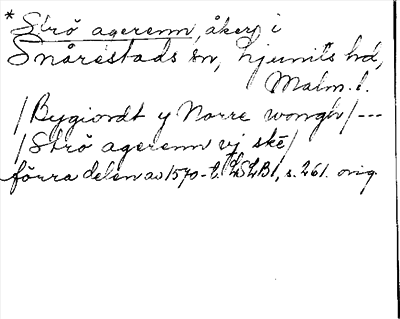 * Strö agerenn, åker i
Snårestads sn, Ljunits hd,
Malm. l.
/Bygiordt y Norre wongh/ ---
/Strö agerenn vj skē/
förra delen av 1570-t. LSLB1, s. 261. orig.